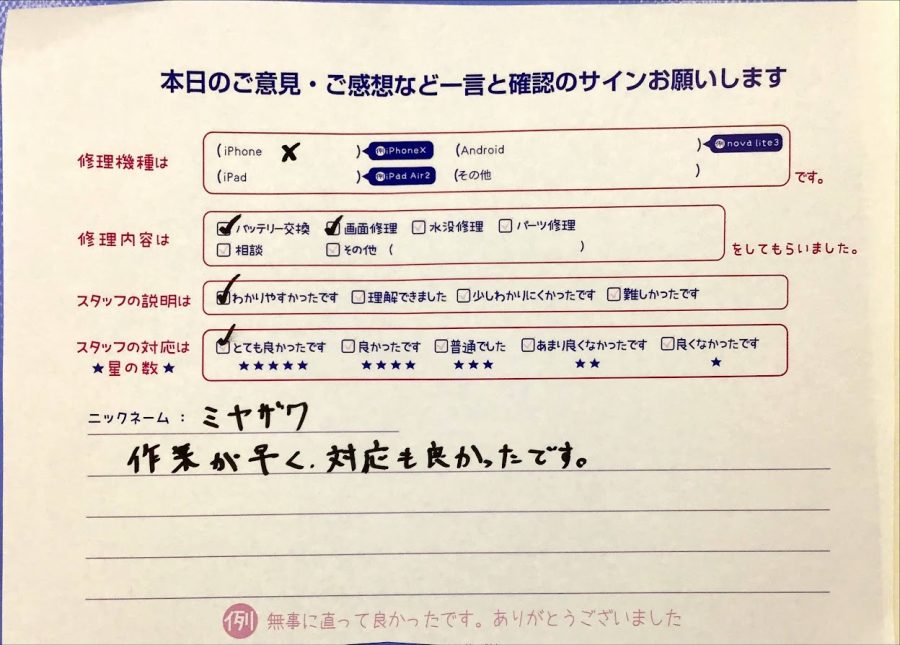 本日のご意見・ご感想など一言と確認のサインお願いします
修理機種は
(iPhone X ) 例iPhoneX (Android ) 例nova lite3
(iPad ) 例iPad Air2 (その他 ) です。
修理内容は
✓バッテリー交換 ✓画面修理 □水没修理 □パーツ修理
□相談 □その他 ( ) をしてもらいました。
スタッフの説明は ✓わかりやすかったです □理解できました □少しわかりにくかったです □難しかったです
スタッフの対応は ✓とても良かったです □良かったです □普通でした □あまり良くなかったです □良くなかったです
★星の数★ ★★★★★ ★★★★ ★★★ ★★ ★
ニックネーム : ミヤザワ
作業が早く、対応も良かったです。
例 無事に直って良かったです。ありがとうございました